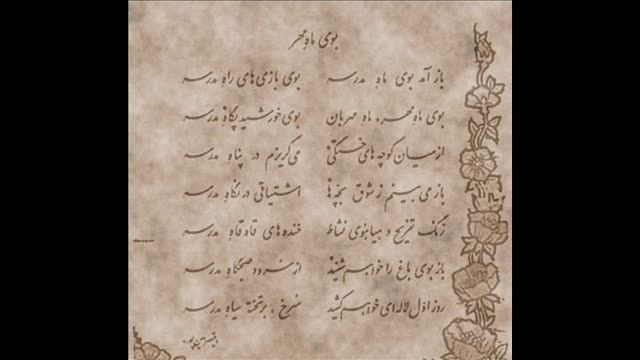 بوی ماه مهر
باز آمد بوی ماه مدرسه بوی بازی‌های راه مدرسه
بوی ماه مهر، ماه مهربان بوی خورشید پگاه مدرسه
از میان کوچه‌های خستگی می‌گریزم در پناه مدرسه
باز می‌بینم ز شوق بچه‌ها اشتیاقی در نگاه مدرسه
زنگ تفریح و هیاهوی نشاط خنده‌های قاه قاه مدرسه
باز بوی باغ را خواهم شنید از سرود صبحگاه مدرسه
روز اول لاله‌ای خواهم کشید سرخ، بر تخته سیاه مدرسه
قیصر امین پور